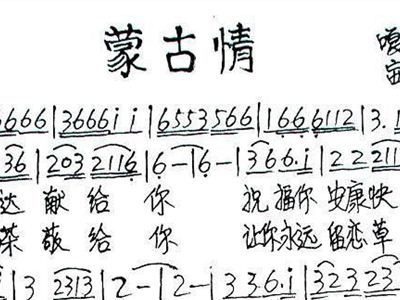 蒙古情
6666 | 3666i i | 6553 566 | 166 6112 | 3.
36 | 203 2116 | 6 - | 6 - | 366.i | 2 2 211
达 献 给 你 祝 福你 安康快
茶 敬 给 你 让你永远 留恋草
| 3 2313 | 2 - | 2 - | 3 3.6.i | 323 23